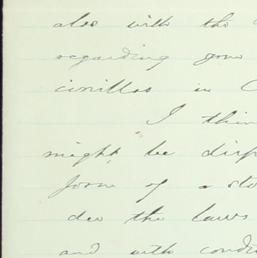 also with the
regarding your
in C
I thin
might be disp
form of a sto
der the laws
and with condi